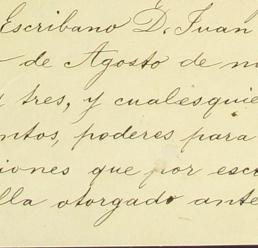 Escribano D. Juan
de Agosto de mi
tres, y cualesquie
ntos, poderes para
iones que por escr
lla otorgado ante